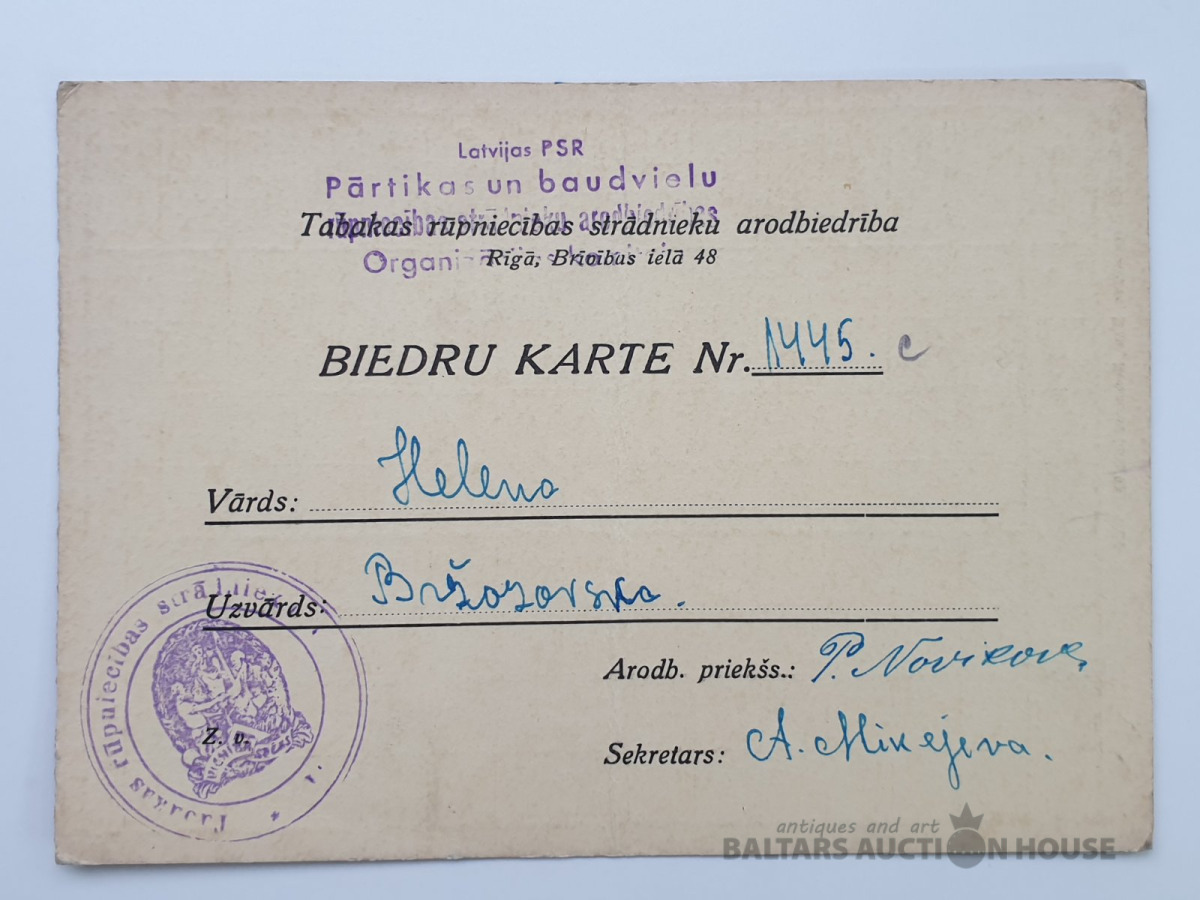 Latvijas PSR
Pārtikas un baudvielu
rūpniecības strādnieku arodbiedrības
Tabakas rūpniecības strādnieku arodbiedrība
Rīgā, Brīvības ielā 48
BIEDRU KARTE Nr. 1445. c
Vārds: Helena
Uzvārds: Bržozovska.
Arodb. priekšs.: P. Novikovs
Z. v.
Sekretars: A. Mikejeva.
Tabakas rūpniecības
antiques and art
BALTARS AUCTION HOUSE